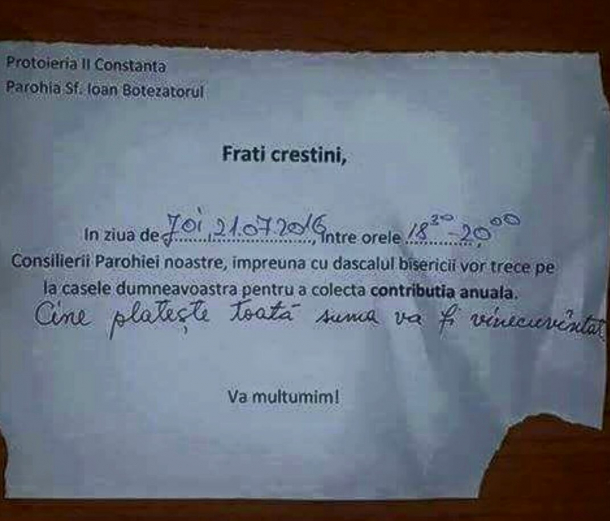 Protoieria II Constanta
Parohia Sf. Ioan Botezatorul
Frati crestini,
In ziua de Joi, 21.07.2016, intre orele 18³⁰-20⁰⁰
Consilierii Parohiei noastre, impreuna cu dascalul bisericii vor trece pe
la casele dumneavoastra pentru a colecta contributia anuala.
Cine plătește toată suma va fi vinecuvîntat
Va multumim!